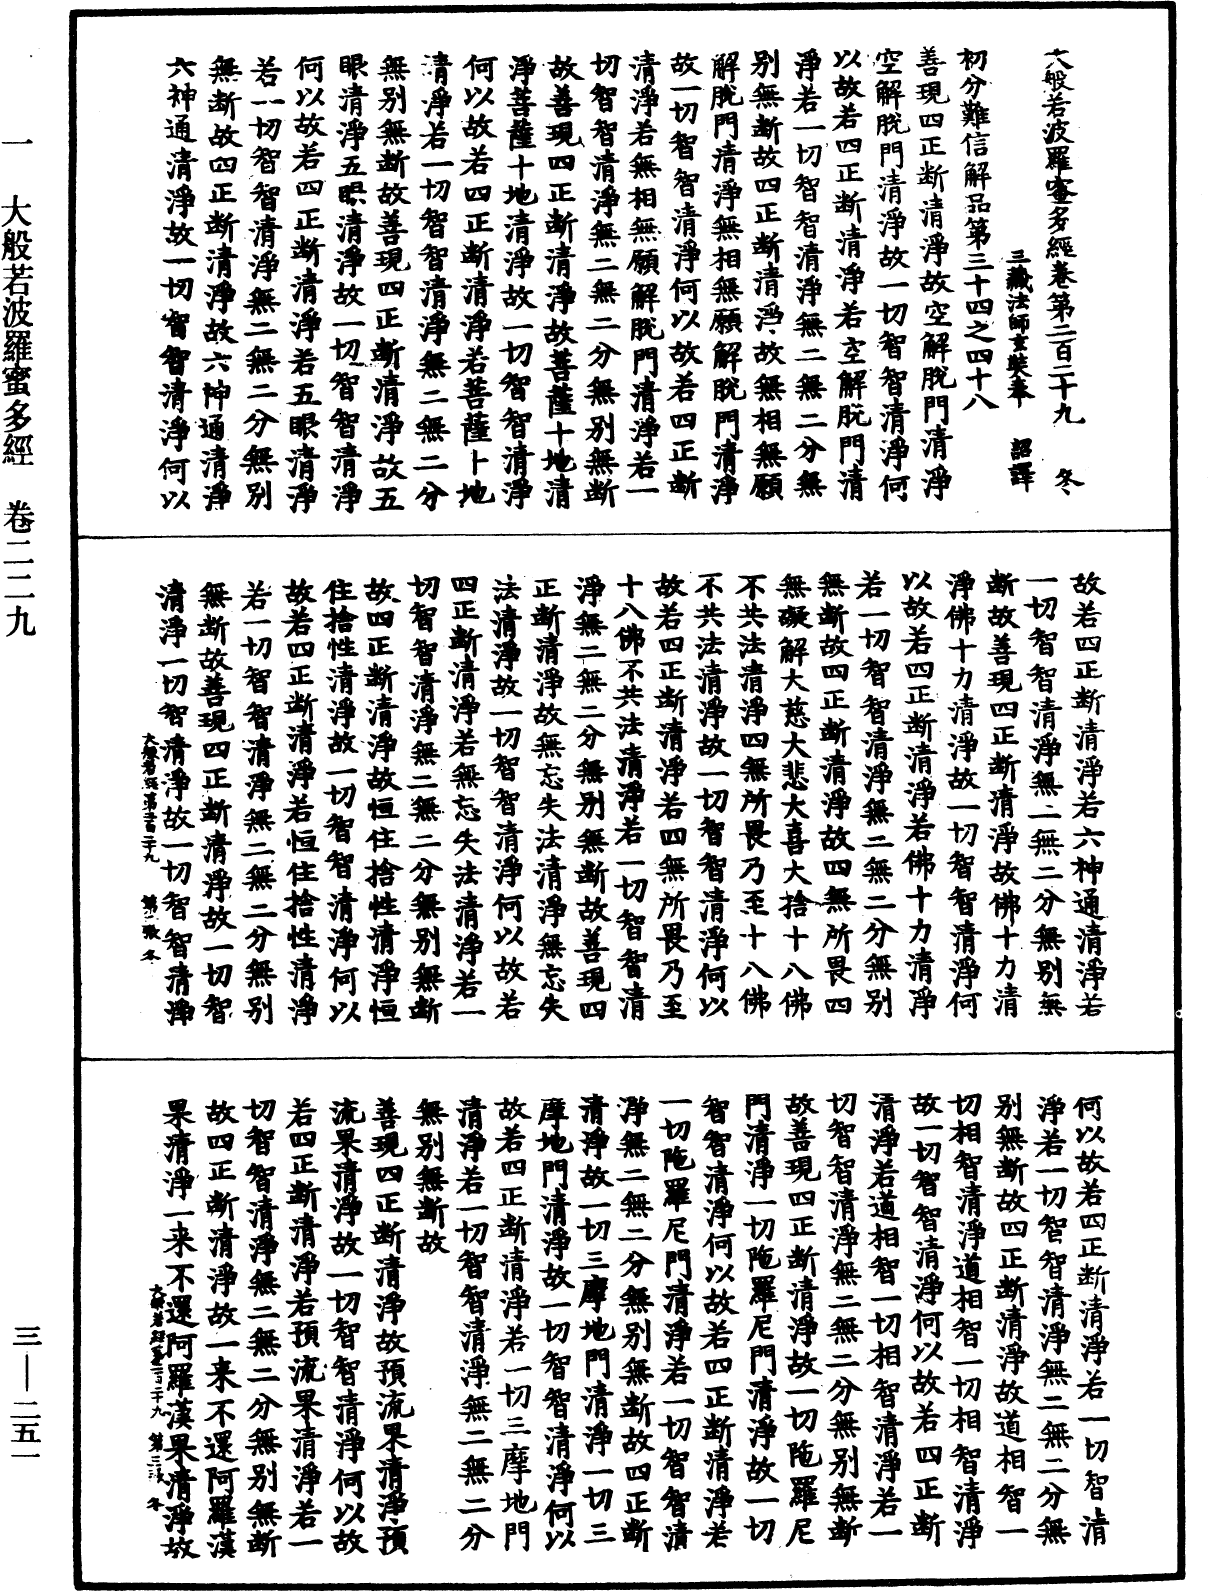 大般若波羅蜜多經卷第二百二十九 冬
三藏法師玄奘奉 詔譯
初分難信解品第三十四之四十八
善現四正斷清淨故空解脫門清淨
空解脫門清淨故一切智智清淨何
以故若四正斷清淨若空解脫門清
淨若一切智智清淨無二無二分無
別無斷故四正斷清淨故無相無願
解脫門清淨無相無願解脫門清淨
故一切智智清淨何以故若四正斷
清淨若無相無願解脫門清淨若一
切智智清淨無二無二分無別無斷
故善現四正斷清淨故菩薩十地清
淨菩薩十地清淨故一切智智清淨
何以故若四正斷清淨若菩薩十地
清淨若一切智智清淨無二無二分
無別無斷故善現四正斷清淨故五
眼清淨五眼清淨故一切智智清淨
何以故若四正斷清淨若五眼清淨
若一切智智清淨無二無二分無別
無斷故四正斷清淨故六神通清淨
六神通清淨故一切智智清淨何以
故若四正斷清淨若六神通清淨若
一切智智清淨無二無二分無別無
斷故善現四正斷清淨故佛十力清
淨佛十力清淨故一切智智清淨何
以故若四正斷清淨若佛十力清淨
若一切智智清淨無二無二分無別
無斷故四正斷清淨故四無所畏四
無礙解大慈大悲大喜大捨十八佛
不共法清淨四無所畏乃至十八佛
不共法清淨故一切智智清淨何以
故若四正斷清淨若四無所畏乃至
十八佛不共法清淨若一切智智清
淨無二無二分無別無斷故善現四
正斷清淨故無忘失法清淨無忘失
法清淨故一切智智清淨何以故若
四正斷清淨若無忘失法清淨若一
切智智清淨無二無二分無別無斷
故四正斷清淨故恒住捨性清淨恒
住捨性清淨故一切智智清淨何以
故若四正斷清淨若恒住捨性清淨
若一切智智清淨無二無二分無別
無斷故善現四正斷清淨故一切智
清淨一切智清淨故一切智智清淨
大般若經第二百二十九 第二張 冬
何以故若四正斷清淨若一切智清
淨若一切智智清淨無二無二分無
別無斷故四正斷清淨故道相智一
切相智清淨道相智一切相智清淨
故一切智智清淨何以故若四正斷
清淨若道相智一切相智清淨若一
切智智清淨無二無二分無別無斷
故善現四正斷清淨故一切陁羅尼
門清淨一切陁羅尼門清淨故一切
智智清淨何以故若四正斷清淨若
一切陁羅尼門清淨若一切智智清
淨無二無二分無別無斷故四正斷
清淨故一切三摩地門清淨一切三
摩地門清淨故一切智智清淨何以
故若四正斷清淨若一切三摩地門
清淨若一切智智清淨無二無二分
無別無斷故
善現四正斷清淨故預流果清淨預
流果清淨故一切智智清淨何以故
若四正斷清淨若預流果清淨若一
切智智清淨無二無二分無別無斷
故四正斷清淨故一来不還阿羅漢
果清淨一来不還阿羅漢果清淨故
大般若經第二百二十九 第三張 冬
一 大般若波羅蜜多經 卷二二九
三—二五一